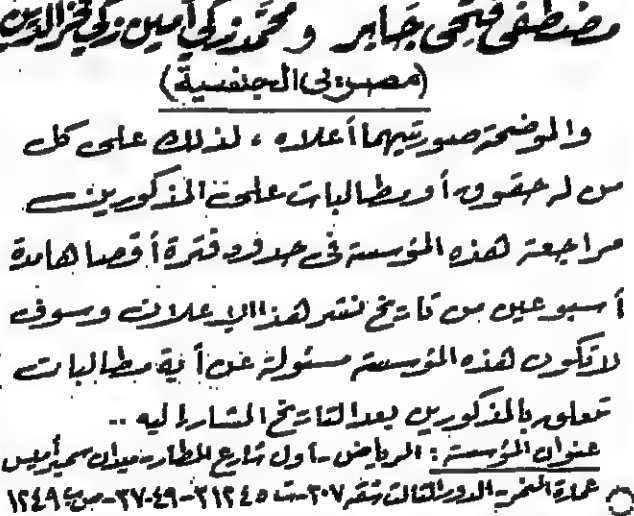 مصطفى فتحى جابر ومحمد زكي أمين زكي فخر الدين
(مصرى الجنسية)
والموضحة صورتيهما أعلاه ، لذلك على كل
من له حقوق أو مطالبات على المذكورين
مراجعة هذه المؤسسة فى حدود فترة أقصاها مدة
أسبوعين من تاريخ نشر هذا الإعلان وسوف
لا تكون هذه المؤسسة مسئولة عن أية مطالبات
تتعلق بالمذكورين بعد التاريخ المشار إليه ..
عنوان المؤسسة : الرياض - أول شارع المطار - ميدان سميراميس
عمارة النمر - الدور الثالث شقه ٢٠٧ - ت ٢١٢٤٥ - ٢٧٠٤٩ - ص ب ١٢٤٩